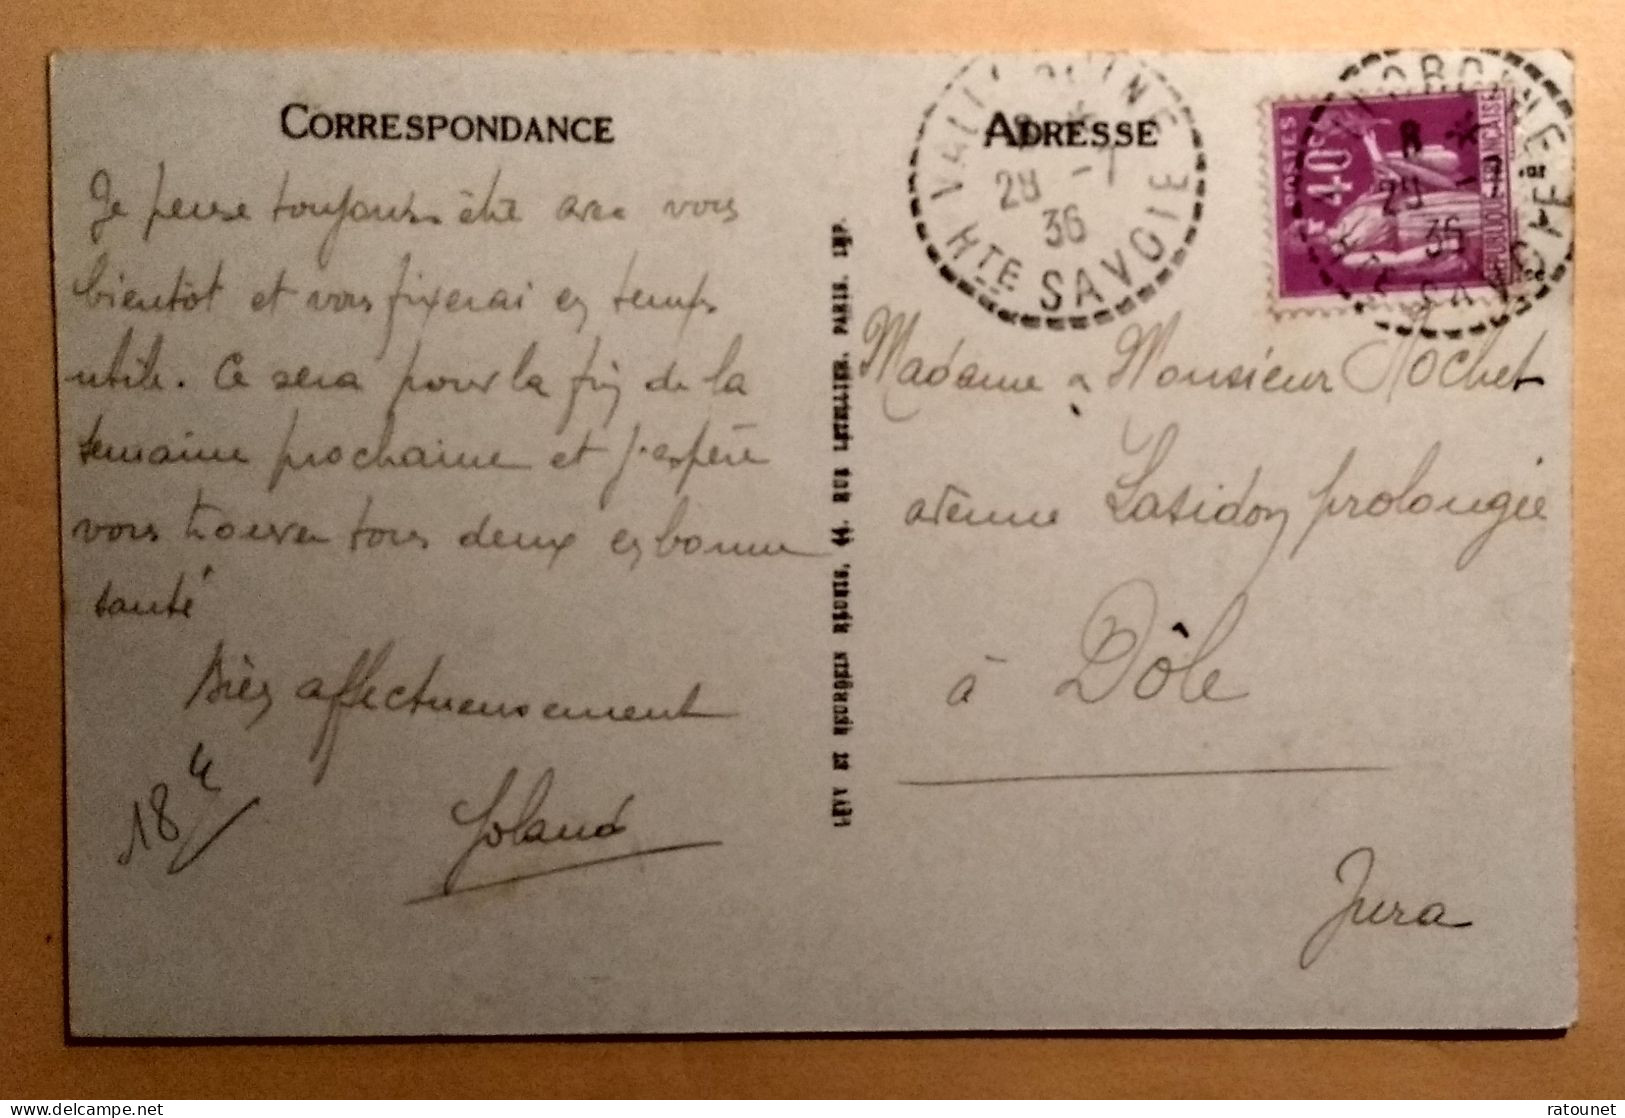 CORRESPONDANCE
Je pense toujours être avec vous
bientôt et vous fixerai en temps
utile. Ce sera pour la fin de la
semaine prochaine et j'espère
vous trouver tous deux en bonne
santé
Bien affectueusement
18
Yoland
LÉVY ET NEURDEIN RÉUNIS, 44, RUE LETELLIER, PARIS. IMP.
ADRESSE
29 -7
36
HTE SAVOIE
POSTES
1F40C
RÉPUBLIQUE FRANÇAISE
8
29 -7
36
HTE SAVOIE
Madame & Monsieur Rochet
avenue prolongée
à Dôle
Jura
delcampe.net
ratounet